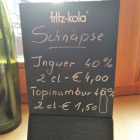 fritz-kola
Schnäpse
Inguer 40%
2 cl - € 4,00
Topinambur 40%
2 cl - € 1,50